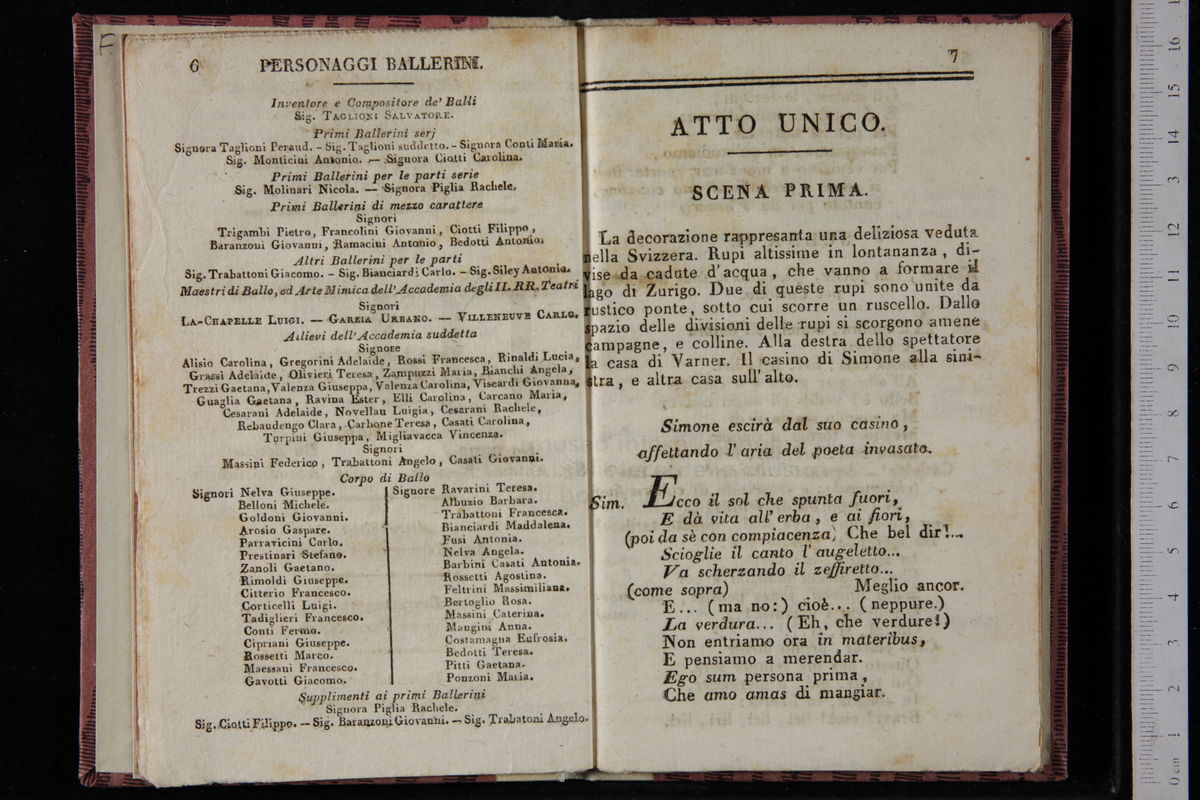 F
6 PERSONAGGI BALLERINI.
Inventore e Compositore de' Balli
Sig. TAGLIONI SALVATORE.
Primi Ballerini serj
Signora Taglioni Peraud. - Sig. Taglioni suddetto. - Signora Conti Maria.
Sig. Monticini Antonio. — Signora Ciotti Carolina.
Primi Ballerini per le parti serie
Sig. Molinari Nicola. — Signora Piglia Rachele.
Primi Ballerini di mezzo carattere
Signori
Trigambi Pietro, Francolini Giovanni, Ciotti Filippo,
Baranzoni Giovanni, Ramacini Antonio, Bedotti Antonio.
Altri Ballerini per le parti
Sig. Trabattoni Giacomo. - Sig. Bianciardi Carlo. - Sig. Siley Antonio.
Maestri di Ballo, ed Arte Mimica dell'Accademia degli II. RR. Teatri
Signori
LA-CHAPELLE LUIGI. — GARZIA URBANO. — VILLENEUVE CARLO.
Allievi dell'Accademia suddetta
Signore
Alisio Carolina, Gregorini Adelaide, Rossi Francesca, Rinaldi Lucia,
Grassi Adelaide, Olivieri Teresa, Zampuzzi Maria, Bianchi Angela,
Trezzi Gaetana, Valenza Giuseppa, Valenza Carolina, Viscardi Giovanna,
Guaglia Gaetana, Ravina Ester, Elli Carolina, Carcano Maria,
Cesarani Adelaide, Novellau Luigia, Cesarani Rachele,
Rebaudengo Clara, Carbone Teresa, Casati Carolina,
Turpini Giuseppa, Migliavacca Vincenza.
Signori
Massini Federico, Trabattoni Angelo, Casati Giovanni.
Corpo di Ballo
Signori Nelva Giuseppe.
Belloni Michele.
Goldoni Giovanni.
Arosio Gaspare.
Parravicini Carlo.
Prestinari Stefano.
Zanoli Gaetano.
Rimoldi Giuseppe.
Citterio Francesco.
Corticelli Luigi.
Tadiglieri Francesco.
Conti Fermo.
Cipriani Giuseppe.
Rossetti Marco.
Maessani Francesco.
Gavotti Giacomo.
Signore Ravarini Teresa.
Albuzio Barbara.
Trabattoni Francesca.
Bianciardi Maddalena.
Fusi Antonia.
Nelva Angela.
Barbini Casati Antonia.
Rossetti Agostina.
Feltrini Massimiliana.
Bertoglio Rosa.
Massini Caterina.
Mangini Anna.
Costamagna Eufrosia.
Bedotti Teresa.
Pitti Gaetana.
Ponzoni Maria.
Supplimenti ai primi Ballerini
Signora Piglia Rachele.
Sig. Ciotti Filippo. — Sig. Baranzoni Giovanni. — Sig. Trabatoni Angelo.
7
ATTO UNICO.
SCENA PRIMA.
La decorazione rappresanta una deliziosa veduta
nella Svizzera. Rupi altissime in lontananza, di-
vise da cadute d'acqua, che vanno a formare il
lago di Zurigo. Due di queste rupi sono unite da
rustico ponte, sotto cui scorre un ruscello. Dallo
spazio delle divisioni delle rupi si scorgono amene
campagne, e colline. Alla destra dello spettatore
la casa di Varner. Il casino di Simone alla sini-
stra, e altra casa sull'alto.
Simone escirà dal suo casino,
affettando l'aria del poeta invasato.
Sim. Ecco il sol che spunta fuori,
E dà vita all'erba, e ai fiori,
(poi da sè con compiacenza) Che bel dir!...
Scioglie il canto l'augeletto...
Va scherzando il zeffiretto...
(come sopra) Meglio ancor.
E... (ma no:) cioè... (neppure.)
La verdura... (Eh, che verdure!)
Non entriamo ora in materibus,
E pensiamo a merendar.
Ego sum persona prima,
Che amo amas di mangiar.
0 cm 1 2 3 4 5 6 7 8 9 10 11 12 13 14 15 16